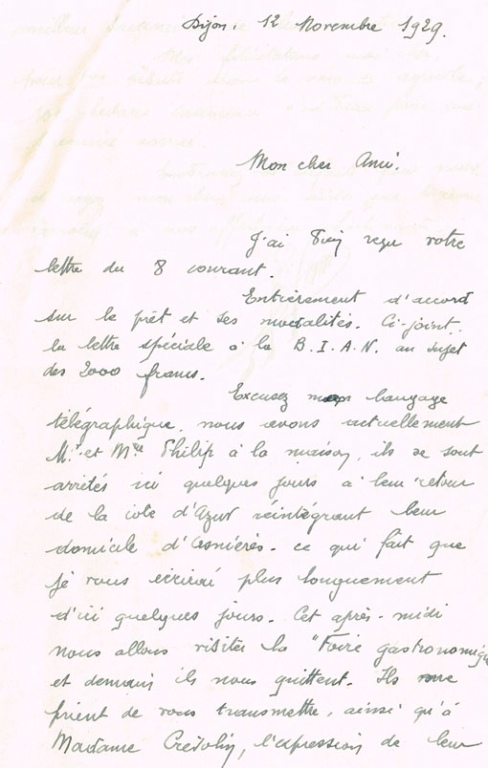 Dijon. 12 Novembre 1929.
Mon cher Ami.
J'ai bien reçu votre
lettre du 8 courant.
Entièrement d'accord
sur le prêt et ses modalités. Ci-joint
la lettre spéciale à la B.I.A.N. au sujet
des 2000 francs.
Excusez mon langage
télégraphique, nous avons actuellement
Mr et Mme Philip à la maison, ils se sont
arrêtés ici quelques jours à leur retour
de la côte d'Azur réintégrant leur
domicile d'Asnières - ce qui fait que
je vous écrirai plus longuement
d'ici quelques jours. Cet après-midi
nous allons visiter la "Foire gastronomique
et demain ils nous quittent. Ils me
prient de vous transmettre, ainsi qu'à
Madame l'expression de leur